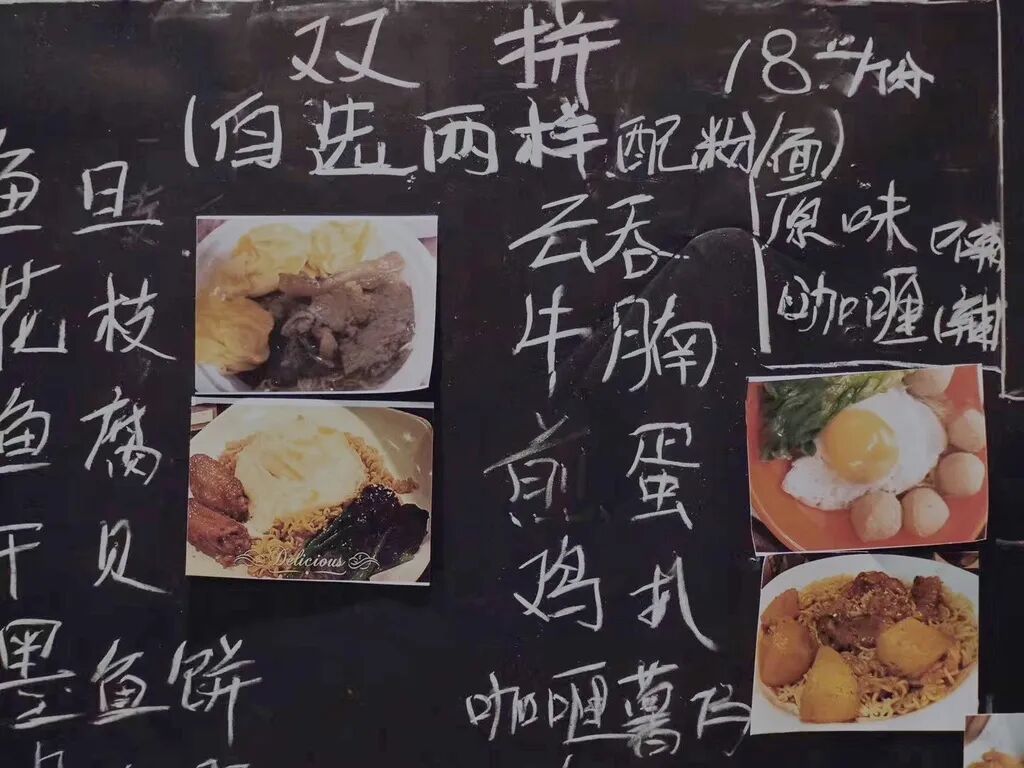 双拼 18元/份
(自选两样配粉/面)
鱼旦
花枝
鱼腐
干贝
墨鱼饼
云吞
牛腩
煎蛋
鸡扒
咖喱薯仔
原味
咖喱
Delicious